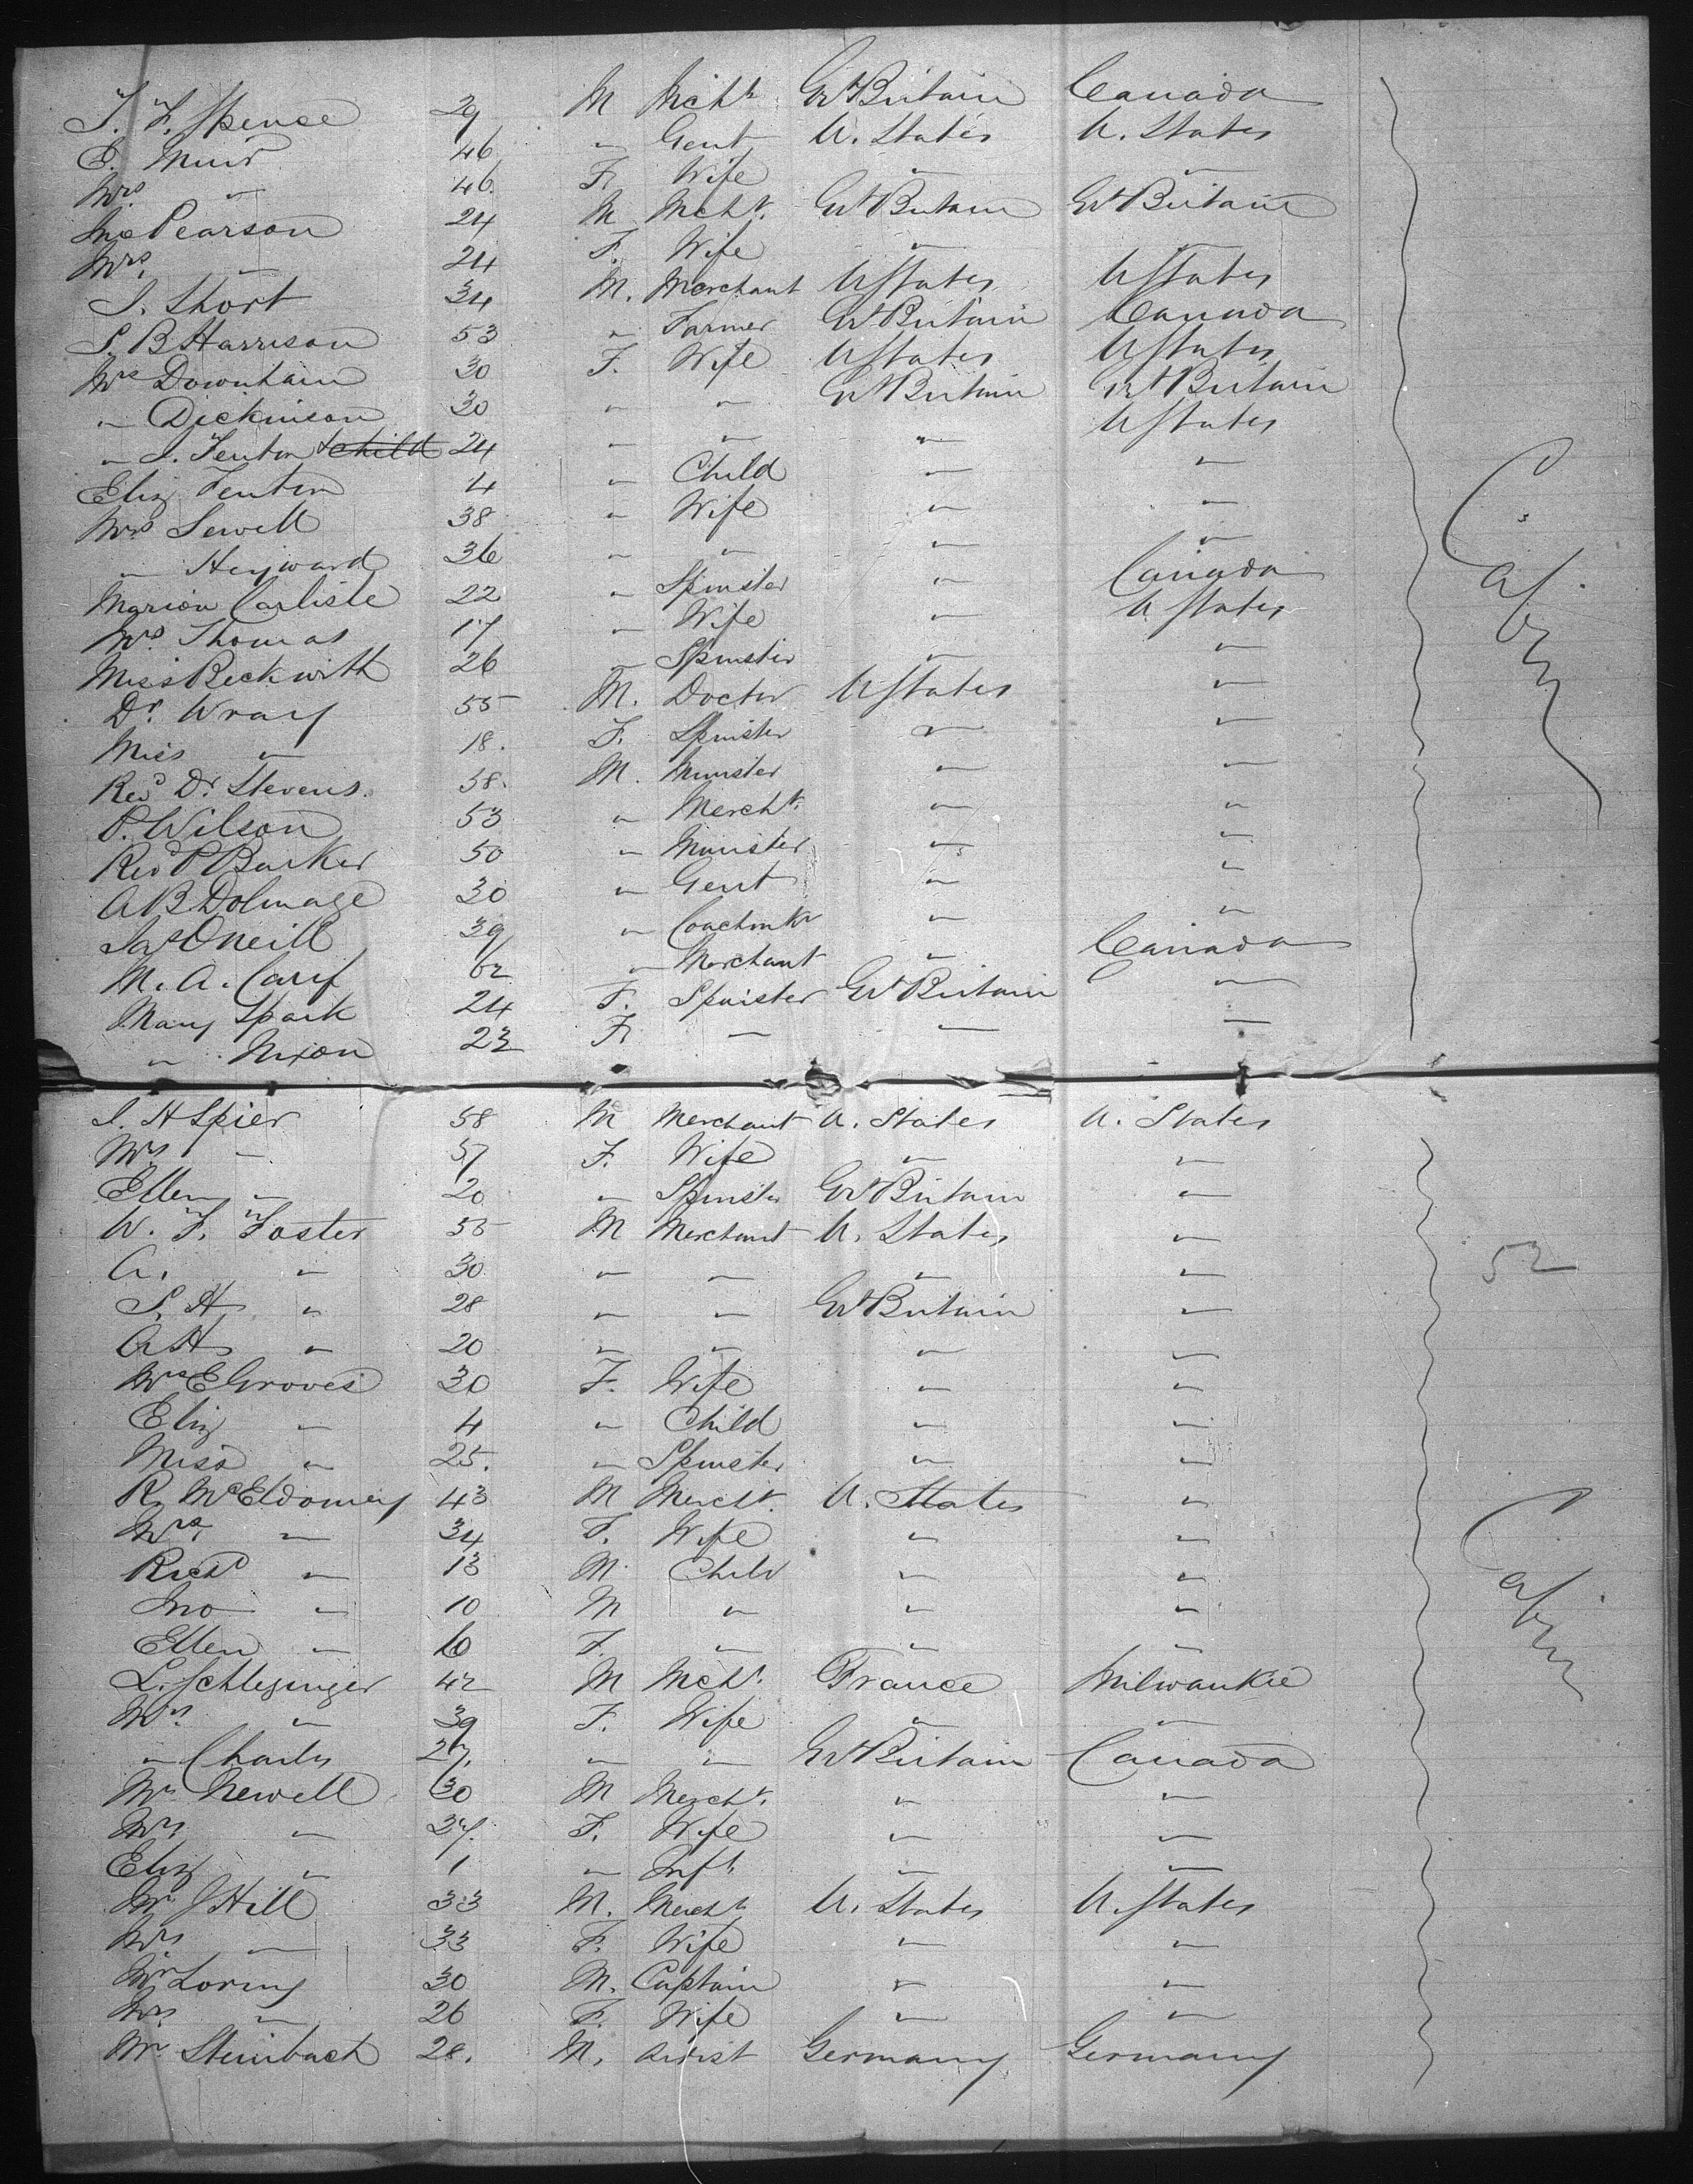 J. F. Spence 29 M Mcht Gt Britain Canada
E. Muir 46 " Gent U. States U. States
Mrs " 46 F Wife " "
Jno Pearson 24 M Mcht. Gt Britain Gt Britain
Mrs. " 24 F. Wife " "
J. Short 34 M. Merchant UStates UStates
S. B Harrison 53 " Farmer Gt Britain Canada
Mrs Downham 30 F. Wife UStates UStates
" Dickinson 30 " " Gt Britain Gt Britain
" J. Fenton & child 24 " " " UStates
Eliz Fenton 4 " Child " "
Mrs Sewell 38 " Wife " "
" Heyward 36 " " " "
Marion Carlisle 22 " Spinster " Canada
Mrs. Thomas 17 " Wife " U States
Miss Beckwith 26 " Spinster " "
Dr. Wray 55 M. Doctor UStates "
Miss " 18. F. Spinster " "
Revd Dr Stevens. 58. M. Minister " "
P. Wilson 53 " Mercht. " "
Revd P Barker 50 " Minister " "
A B Dolmage 30 " Gent " "
Jas ONeill 39 " Coachmkr " "
M. A. 62 " Merchant " Canada
Mary Spark 24 F. Spinster Gt Britain "
" Nixon 23 F " " "
Cabin
J. H Spier 58 M Merchant U. States U. States
Mrs " 57 F. Wife " "
Ellen " 20 " Spinster Gt Britain "
W. F. Foster 55 M Merchant U. States "
A. " 30 " " " "
S. H " 28 " " Gt Britain "
A H " 20 " " " "
Mrs E Groves 30 F. Wife " "
Eliz " 4 " Child " "
Miss " 25. " Spinster " "
R McEldowney 43 M Mercht. U. States "
Mrs. " 34 F. Wife " "
Richd " 13 M Child " "
Jno " 10 M " " "
Ellen " 6 F. " " "
L. Schlesinger 42 M Mcht. France Milwaukie
Mrs. " 39 F. Wife " "
" Charles 27. " " Gt Britain Canada
Mr Newell 30 M Mercht. " "
Mrs. " 27. F. Wife " "
Eliz " 1 " Inft " "
Mr J Hill 33 M. Mercht U. States U. States
Mrs " 33 F. Wife " "
Mr Loring 30 M. Captain " "
Mrs. " 26 F. Wife " "
Mr. Steinbach 28. M. Artist Germany Germany
52
Cabin